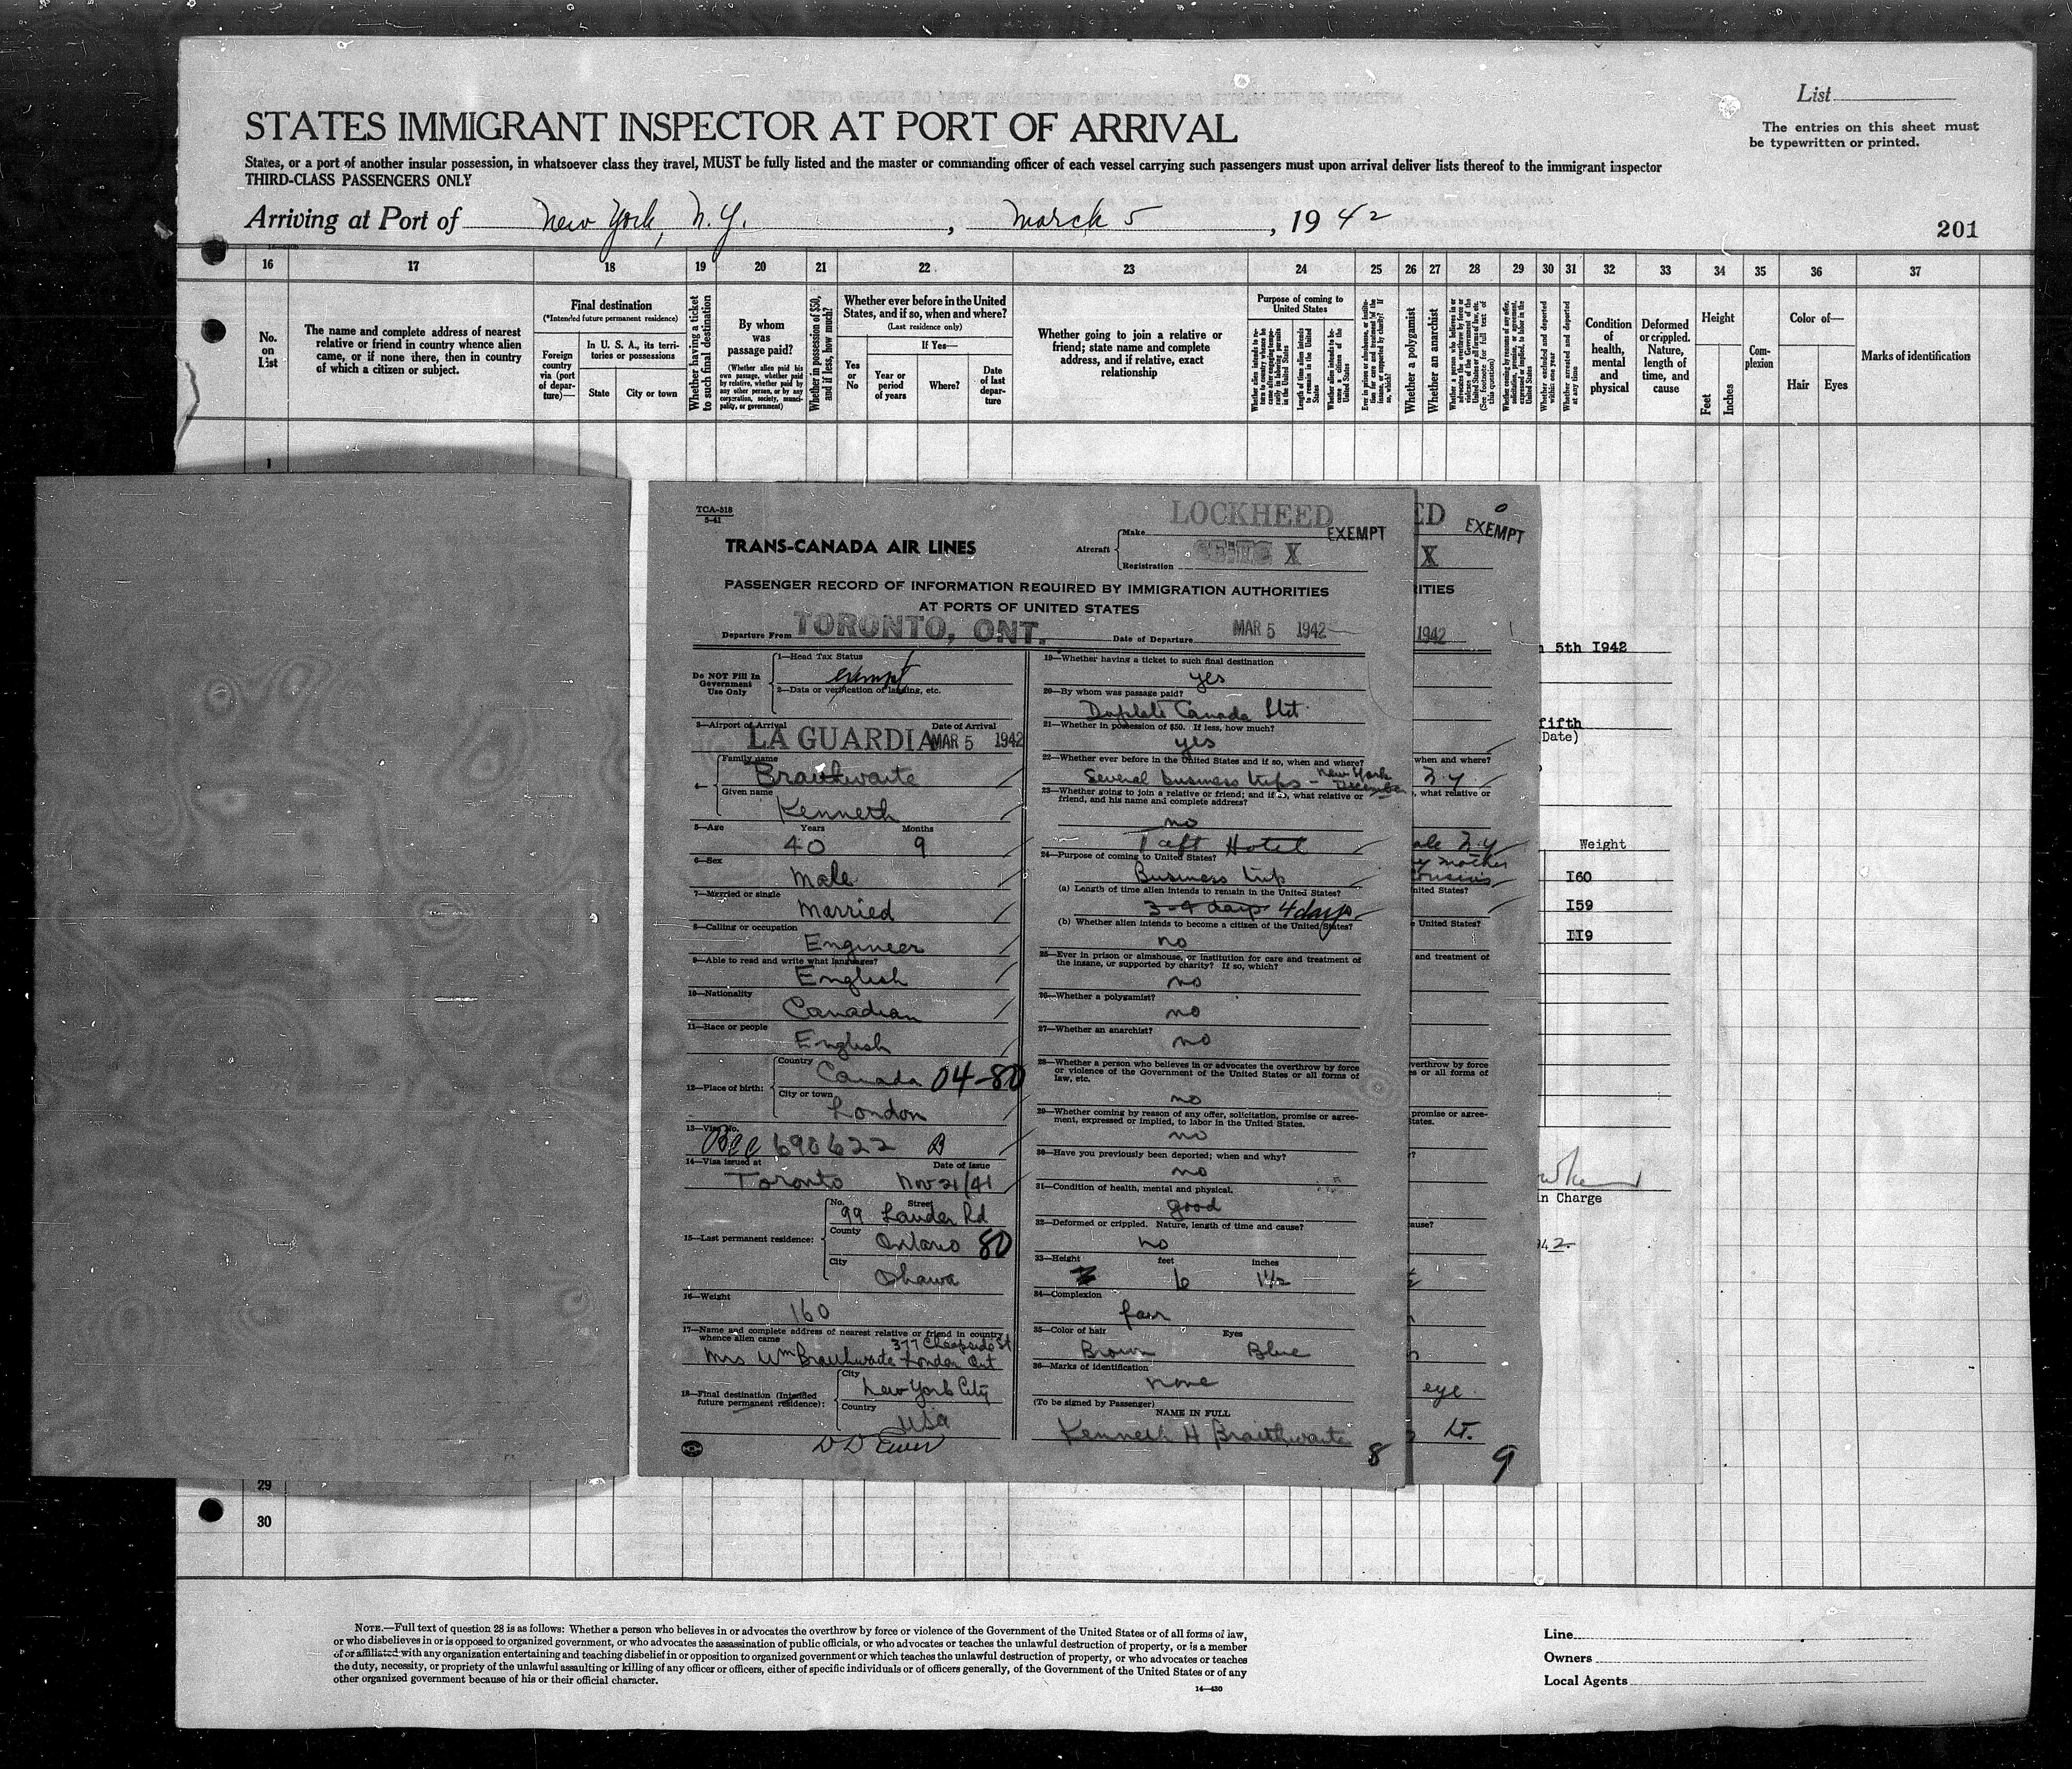 List
The entries on this sheet must
be typewritten or printed.
STATES IMMIGRANT INSPECTOR AT PORT OF ARRIVAL
States, or a port of another insular possession, in whatsoever class they travel, MUST be fully listed and the master or commanding officer of each vessel carrying such passengers must upon arrival deliver lists thereof to the immigrant inspector
THIRD-CLASS PASSENGERS ONLY
Arriving at Port of New York, N.Y., March 5, 1942
201
16 17 18 19 20 21 22 23 24 25 26 27 28 29 30 31 32 33 34 35 36 37
No. on List
The name and complete address of nearest
relative or friend in country whence alien
came, or if none there, then in country
of which a citizen or subject.
Final destination
(*Intended future permanent residence)
Foreign country via (port of departure)—
In U. S. A., its territories or possessions
State
City or town
Whether having a ticket to such final destination
By whom was passage paid?
(Whether alien paid his own passage, whether paid by relative, whether paid by any other person, or by any corporation, society, municipality, or government)
Whether in possession of $50, and if less, how much?
Whether ever before in the United
States, and if so, when and where?
(Last residence only)
Yes or No
If Yes—
Year or period of years
Where?
Date of last departure
Whether going to join a relative or
friend; state name and complete
address, and if relative, exact
relationship
Purpose of coming to United States
Whether a polygamist
Whether an anarchist
Condition of health, mental and physical
Deformed or crippled. Nature, length of time, and cause
Height
Feet
Inches
Complexion
Color of—
Hair
Eyes
Marks of identification
1
TCA-518
5-41
TRANS-CANADA AIR LINES
Aircraft
Make LOCKHEED
EXEMPT
Registration X
PASSENGER RECORD OF INFORMATION REQUIRED BY IMMIGRATION AUTHORITIES
AT PORTS OF UNITED STATES
Departure From TORONTO, ONT. Date of Departure MAR 5 1942
Do NOT Fill In Government Use Only
1—Head Tax Status
exempt
2—Data or verification of landing, etc.
3—Airport of Arrival Date of Arrival
LA GUARDIA MAR 5 1942
4— Family name
Braithwaite
Given name
Kenneth
5—Age Years Months
40 9
6—Sex
Male
7—Married or single
Married
8—Calling or occupation
Engineer
9—Able to read and write what languages?
English
10—Nationality
Canadian
11—Race or people
English
12—Place of birth:
Country
Canada 04-80
City or town
London
13—Visa No.
BCC 690622
14—Visa issued at Date of Issue
Toronto Nov 21/41
15—Last permanent residence:
No. Street
99 Lauder Rd
County
Ontario 80
City
Oshawa
16—Weight
160
17—Name and complete address of nearest relative or friend in country
whence alien came
377 Cheapside St
Mrs Wm Braithwaite London Ont
18—Final destination (Intended
future permanent residence):
City
New York City
Country
USA
19—Whether having a ticket to such final destination
yes
20—By whom was passage paid?
Duplate Canada Ltd
21—Whether in possession of $50. If less, how much?
yes
22—Whether ever before in the United States and if so, when and where?
Several business trips - New York December
23—Whether going to join a relative or friend; and if so, what relative or
friend, and his name and complete address?
no
Taft Hotel
24—Purpose of coming to United States?
Business trip
(a) Length of time alien intends to remain in the United States?
3-4 days 4 days
(b) Whether alien intends to become a citizen of the United States?
no
25—Ever in prison or almshouse, or institution for care and treatment of
the insane, or supported by charity? If so, which?
no
26—Whether a polygamist?
no
27—Whether an anarchist?
no
28—Whether a person who believes in or advocates the overthrow by force
or violence of the Government of the United States or all forms of
law, etc.
no
29—Whether coming by reason of any offer, solicitation, promise or agree-
ment, expressed or implied, to labor in the United States.
no
30—Have you previously been deported; when and why?
no
31—Condition of health, mental and physical.
good
32—Deformed or crippled. Nature, length of time and cause?
no
33—Height feet inches
6 1½
34—Complexion
fair
35—Color of hair Eyes
Brown Blue
36—Marks of identification
none
(To be signed by Passenger)
NAME IN FULL
Kenneth H Braithwaite
8
ED
EXEMPT
X
RITIES
1942
when and where?
N.Y.
, what relative or
ale N.Y
mother
cousins
United States?
United States?
and treatment of
overthrow by force
or all forms of
promise or agree-
States.
cause?
eye
Lt.
9
5th 1942
fifth
(Date)
Weight
160
159
119
in Charge
29
30
NOTE.—Full text of question 28 is as follows: Whether a person who believes in or advocates the overthrow by force or violence of the Government of the United States or of all forms of law,
or who disbelieves in or is opposed to organized government, or who advocates the assassination of public officials, or who advocates or teaches the unlawful destruction of property, or is a member
of or affiliated with any organization entertaining and teaching disbelief in or opposition to organized government or which teaches the unlawful destruction of property, or who advocates or teaches
the duty, necessity, or propriety of the unlawful assaulting or killing of any officer or officers, either of specific individuals or of officers generally, of the Government of the United States or of any
other organized government because of his or their official character.
14—430
Line
Owners
Local Agents